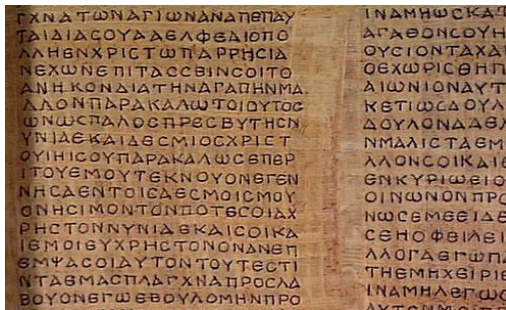 ΓΧΝΑΤΩΝΑΓΙΩΝΑΝΑΠΕΠΑΥ
ΤΑΙΔΙΑϹΟΥΑΔΕΛΦΕΔΙΟΠΟ
ΛΛΗΕΝΧΡΙϹΤΩΠΑΡΡΗϹΙΑ
ΝΕΧΩΝΕΠΙΤΑϹϹΕΙΝϹΟΙΤΟ
ΑΝΗΚΟΝΔΙΑΤΗΝΑΓΑΠΗΝΜΑ
ΛΛΟΝΠΑΡΑΚΑΛΩΤΟΙΟΥΤΟϹ
ΩΝΩϹΠΑΛΟϹΠΡΕϹΒΥΤΗϹΝ
ΥΝΙΔΕΚΑΙΔΕϹΜΙΟϹΧΡΙϹΤ
ΟΥΙΗϹΟΥΠΑΡΑΚΑΛΩϹΕΠΕΡ
ΙΤΟΥΕΜΟΥΤΕΚΝΟΥΟΝΕΓΕΝ
ΝΗϹΑΕΝΤΟΙϹΔΕϹΜΟΙϹΜΟΥ
ΟΝΗϹΙΜΟΝΤΟΝΠΟΤΕϹΟΙΑΧ
ΡΗϹΤΟΝΝΥΝΙΔΕΚΑΙϹΟΙΚΑ
ΙΕΜΟΙΕΥΧΡΗϹΤΟΝΟΝΑΝΕΠ
ΕΜΨΑϹΟΙΑΥΤΟΝΤΟΥΤΕϹΤΙ
ΝΤΑΕΜΑϹΠΛΑΓΧΝΑΠΡΟϹΛΑ
ΒΟΥΟΝΕΓΩΕΒΟΥΛΟΜΗΝΠΡΟ
ΙΝΑΜΗΩϹΚΑΤ
ΑΓΑΘΟΝϹΟΥΗ
ΟΥϹΙΟΝΤΑΧΑ
ΟΕΧΩΡΙϹΘΗΠ
ΑΙΩΝΙΟΝΑΥΤ
ΚΕΤΙΩϹΔΟΥΛ
ΔΟΥΛΟΝΑΔΕΛ
ΝΜΑΛΙϹΤΑΕΜ
ΛΛΟΝϹΟΙΚΑΙΕ
ΕΝΚΥΡΙΩΕΙΟ
ΟΙΝΩΝΟΝΠΡΟ
ΝΩϹΕΜΕΕΙΔΕ
ϹΕΗΟΦΕΙΛΕΙ
ΛΛΟΓΑΕΓΩΠΑ
ΤΗΕΜΗΧΕΙΡΙΕ
ΙΝΑΜΗΛΕΓΩϹ